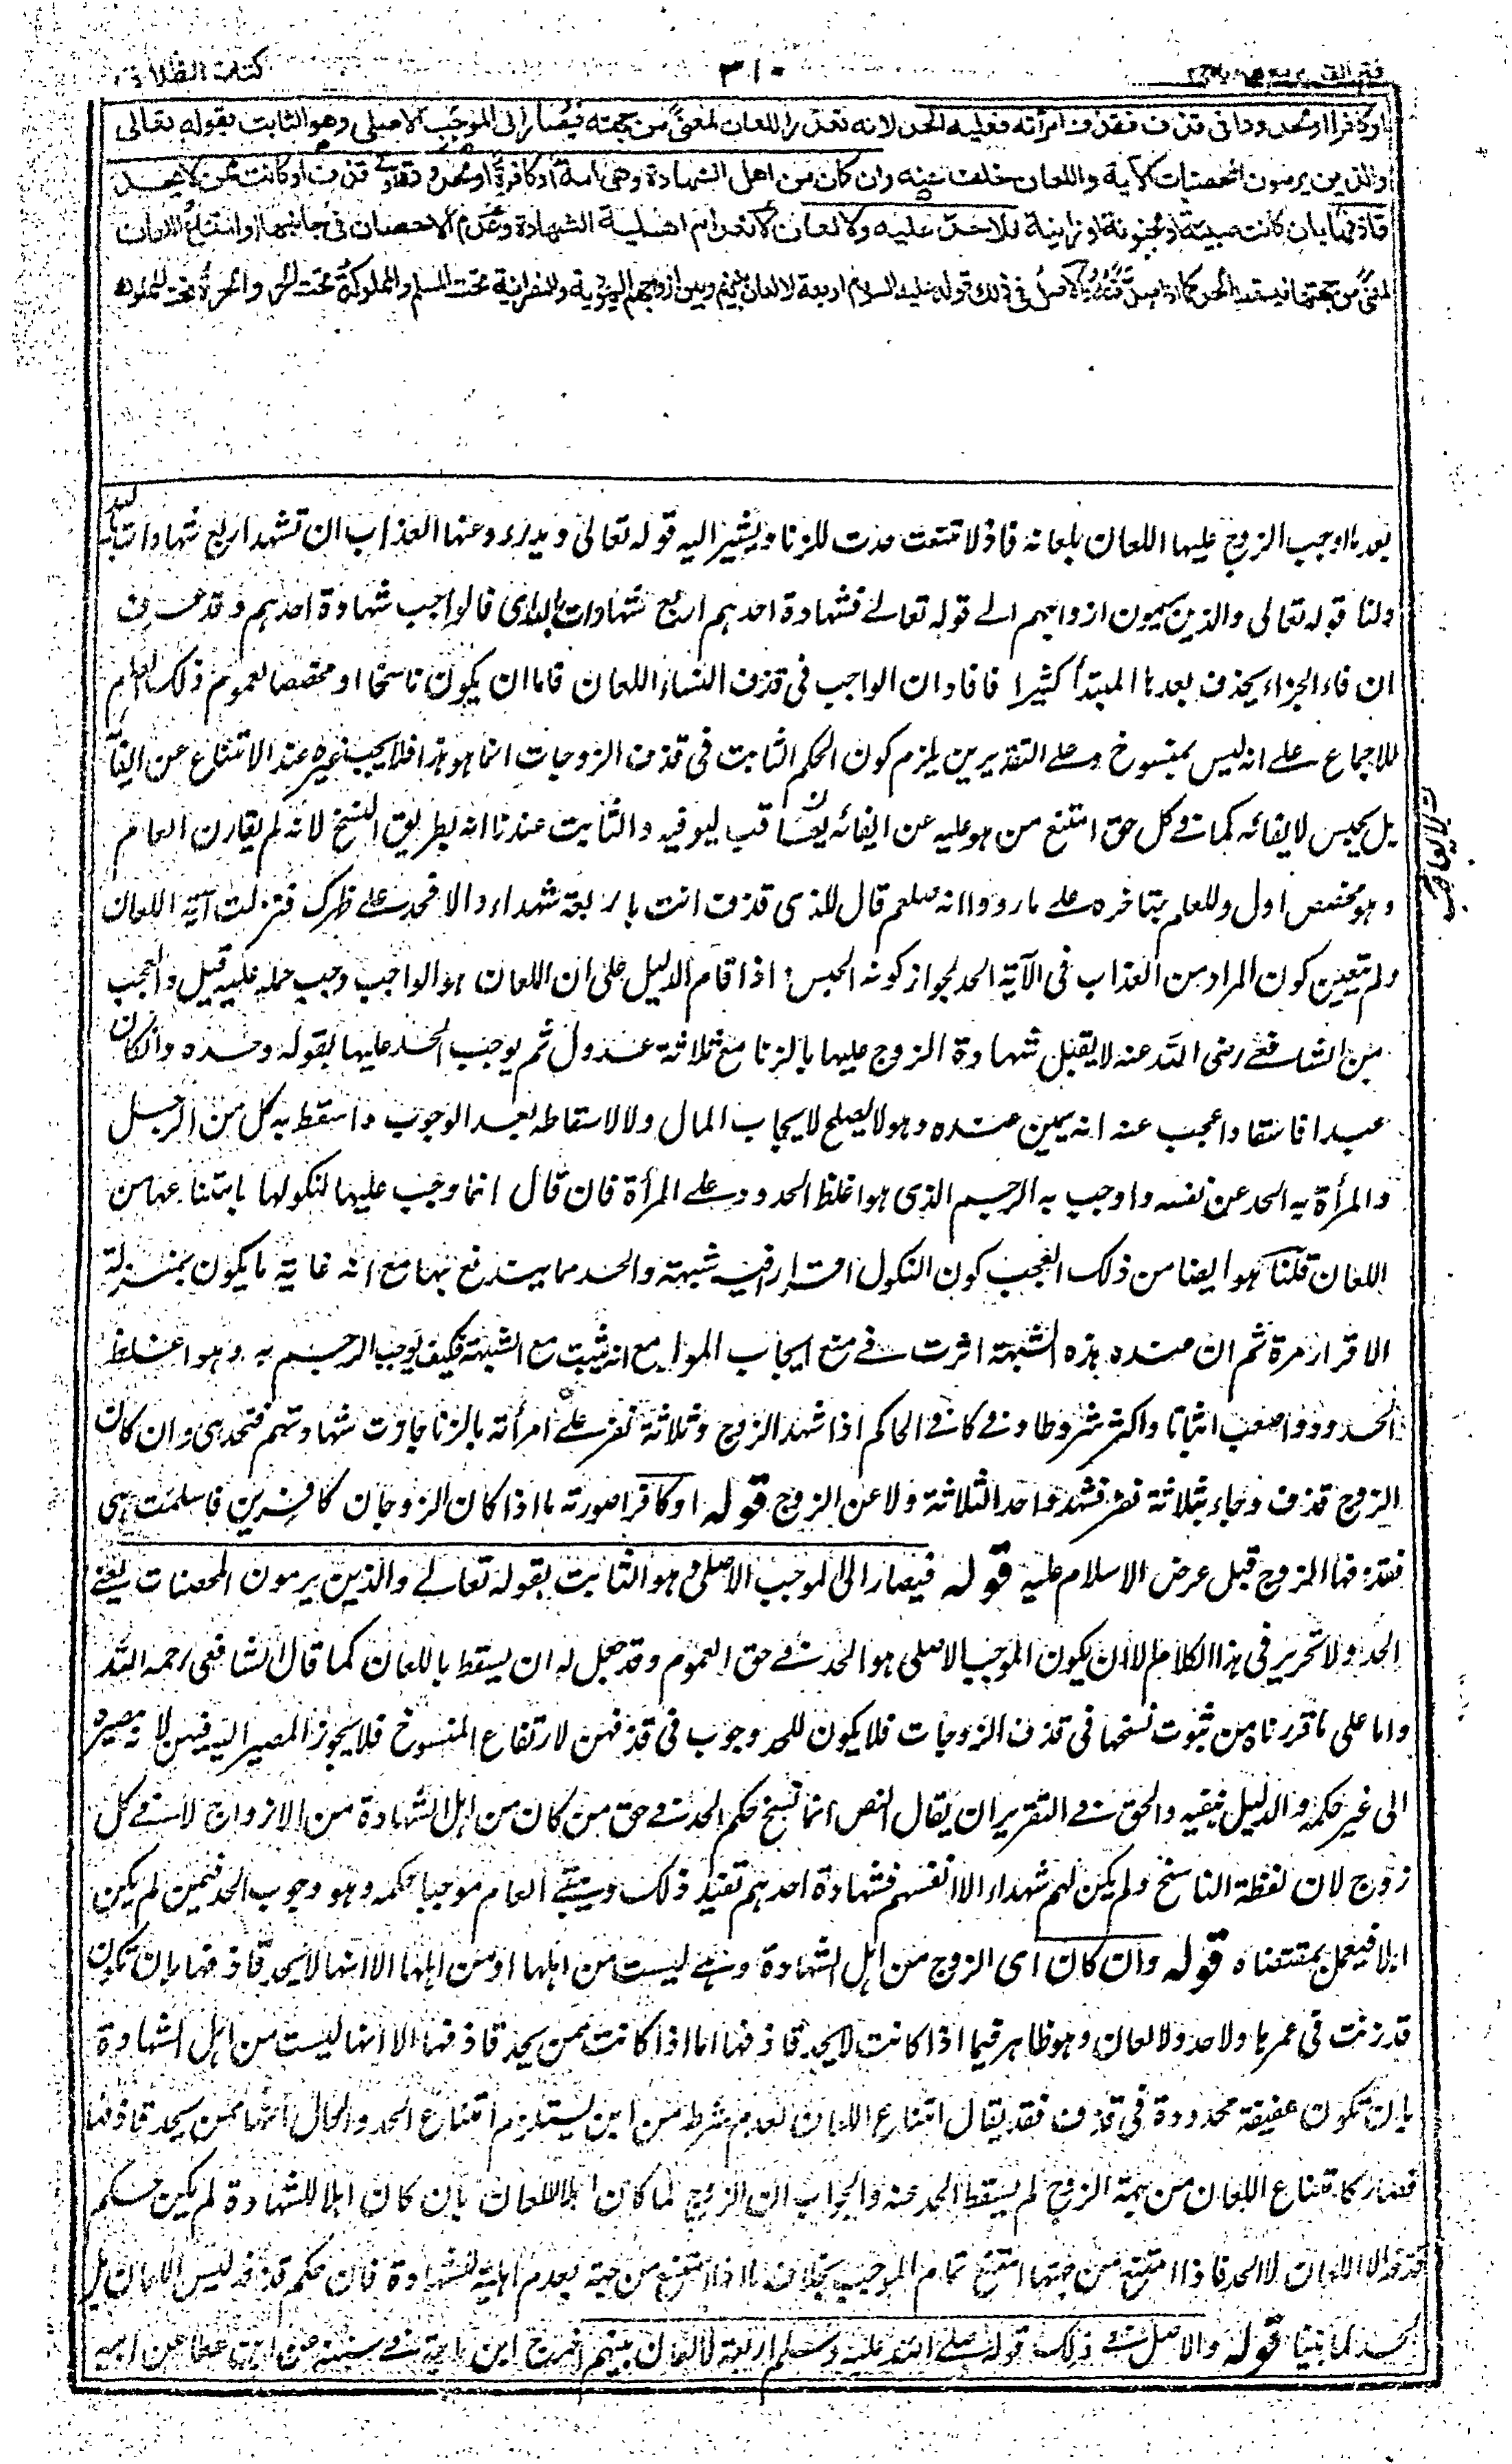 كتاب الطلاق
٣١٠
اوكافرا اومحدودا فى قذف فقذف امرأته فعليه الحد لانه تعذر اللعان لمعنى من جهته فيصار الى الموجب الاصلى وهو الثابت بقوله تعالى
والذين يرمون المحصنات الآية واللعان خلف عنه وان كان من اهل الشهادة وهى امة اوكافرة اومحدودة فى قذف اوكانت ممن لا يحد
قاذفها بان كانت صبية او مجنونة او زانية فلا حد عليه ولا لعان لانعدام اهلية الشهادة وعدم الاحصان فى جانبها وامتناع اللعان
لمعنى من جهتها فيسقط الحد كما اذا صدقته والاصل فى ذلك قوله عليه السلام اربعة لا لعان بينهم وبين ازواجهم اليهودية والنصرانية تحت المسلم والمملوكة تحت الحر والحرة تحت المملوك
بعد ما اوجب الزوج عليها اللعان بلعانه فاذا امتنعت حدت للزنا ويشير اليه قوله تعالى ويدرء عنها العذاب ان تشهد اربع شهادات بالله
ولنا قوله تعالى والذين يرمون ازواجهم الے قوله تعالے فشهادة احدهم اربع شهادات بالله اى فالواجب شهادة احدهم وقد عرف
ان فاء الجزاء يحذف بعدها المبتدأ كثيرا فافاد ان الواجب فى قذف النساء اللعان فاما ان يكون ناسخا او مخصصا لعموم ذلك العام
للاجماع علے انه ليس بمنسوخ وعلے التقديرين يلزم كون الحكم الثابت فى قذف الزوجات انما هو هذا فلا يجب غيره عند الامتناع عن ايفائه
بل يحبس لايفائه كما فے كل حق امتنع من هو عليه عن ايفائه يعاقب ليوفيه والثابت عندنا انه بطريق النسخ لانه لم يقارن العام
وهو مخصص اول وللعلم بتاخره علے ما رووا انه صلعم قال للذى قذف ائت باربعة شهداء والا فحد علے ظهرك فنزلت آية اللعان
ولم يتعين كون المراد من العذاب فى الآية الحد لجواز كونه الحبس واذا قام الدليل على ان اللعان هو الواجب وجب حمله عليه قيل والعجب
من الشافعے رضى الله عنه لا يقبل شهادة الزوج عليها بالزنا مع ثلاثة عدول ثم يوجب الحد عليها بقوله وحده وان كان
عبدا فاسقا واعجب عنه انه يمين عنده وهو لا يصلح لايجاب المال ولا لاسقاطه بعد الوجوب واسقط به كل من الرجل
والمرأة به الحد عن نفسه واوجب به الرجم الذى هو اغلظ الحدود علے المرأة فان قال انما وجب عليها لنكولها بامتناعها من
اللعان قلنا هو ايضا من ذلك العجب كون النكول اقرارا فيه شبهة والحد مما يندفع بها مع انه غاية ما يكون بمنزلة
الاقرار مرة ثم ان عنده هذه الشبهة اثرت فے منع ايجاب المال مع انه يثبت مع الشبهة فكيف يوجب الرجم به وهو اغلظ
الحدود واصعب اثباتا واكثر شروطا وفے كافے الحاكم اذا شهد الزوج وثلاثة نفر علے امرأته بالزنا جازت شهادتهم فتحد هى وان كان
الزوج قذف وجاء بثلاثة نفر فشهدوا حد الثلاثة ولاعن الزوج قوله اوكافرا صورته ما اذا كان الزوجان كافرين فاسلمت هى
فقذفها الزوج قبل عرض الاسلام عليه قوله فيصار الى الموجب الاصلى هو الثابت بقوله تعالے والذين يرمون المحصنات يعنے
الحد ولا تحرير فى هذا الكلام الا ان يكون الموجب الاصلى هو الحد فے حق العموم وقد جعل له ان يسقط باللعان كما قال الشافعى رحمه الله
واما على ما قررناه من ثبوت نسخها فى قذف الزوجات فلا يكون للحد وجوب فى قذفهن لارتفاع المنسوخ فلا يجوز المصير اليه فيهن لانه يصير
الى غير حكم والدليل ينفيه والحق فے التقرير ان يقال النص انما نسخ حكم الحد فے حق من كان من اهل الشهادة من الازواج لا فے كل
زوج لان لفظة الناسخ ولم يكن لهم شهداء الا انفسهم فشهادة احدهم تفيد ذلك ويبقے العام موجبا حكمه وهو وجوب الحد فيمن لم يكن
اهلا فيعمل بمقتضاه قوله وان كان اى الزوج من اهل الشهادة وهى ليست من اهلها او من اهلها الا انها لا يحد قاذفها بان تكون
قد زنت فى عمرها ولا حد ولا لعان وهو ظاهر فيما اذا كانت لا يحد قاذفها اما اذا كانت ممن يحد قاذفها الا انها ليست من اهل الشهادة
بان تكون عفيفة محدودة فى قذف فقد يقال امتناع اللعان لعدم شرط من اين يستلزم امتناع الحد والحال انها ممن يحد قاذفها
فصار كامتناع اللعان من جهة الزوج لم يسقط الحد عنه والجواب ان الزوج لما كان اهلا للعان بان كان اهلا للشهادة لم يكن حكم
قذفه الا اللعان لا الحد فاذا امتنع من جهتها امتنع تمام الموجب بخلاف ما اذا امتنع من جهته بعدم اهلية الشهادة فان حكم قذفه ليس اللعان بل
الحد لما بينا قوله والاصل فے ذلك قوله صلے الله عليه وسلم اربعة لا لعان بينهم اخرج ابن ماجة فے سننه عن ابن عطا عن ابيه